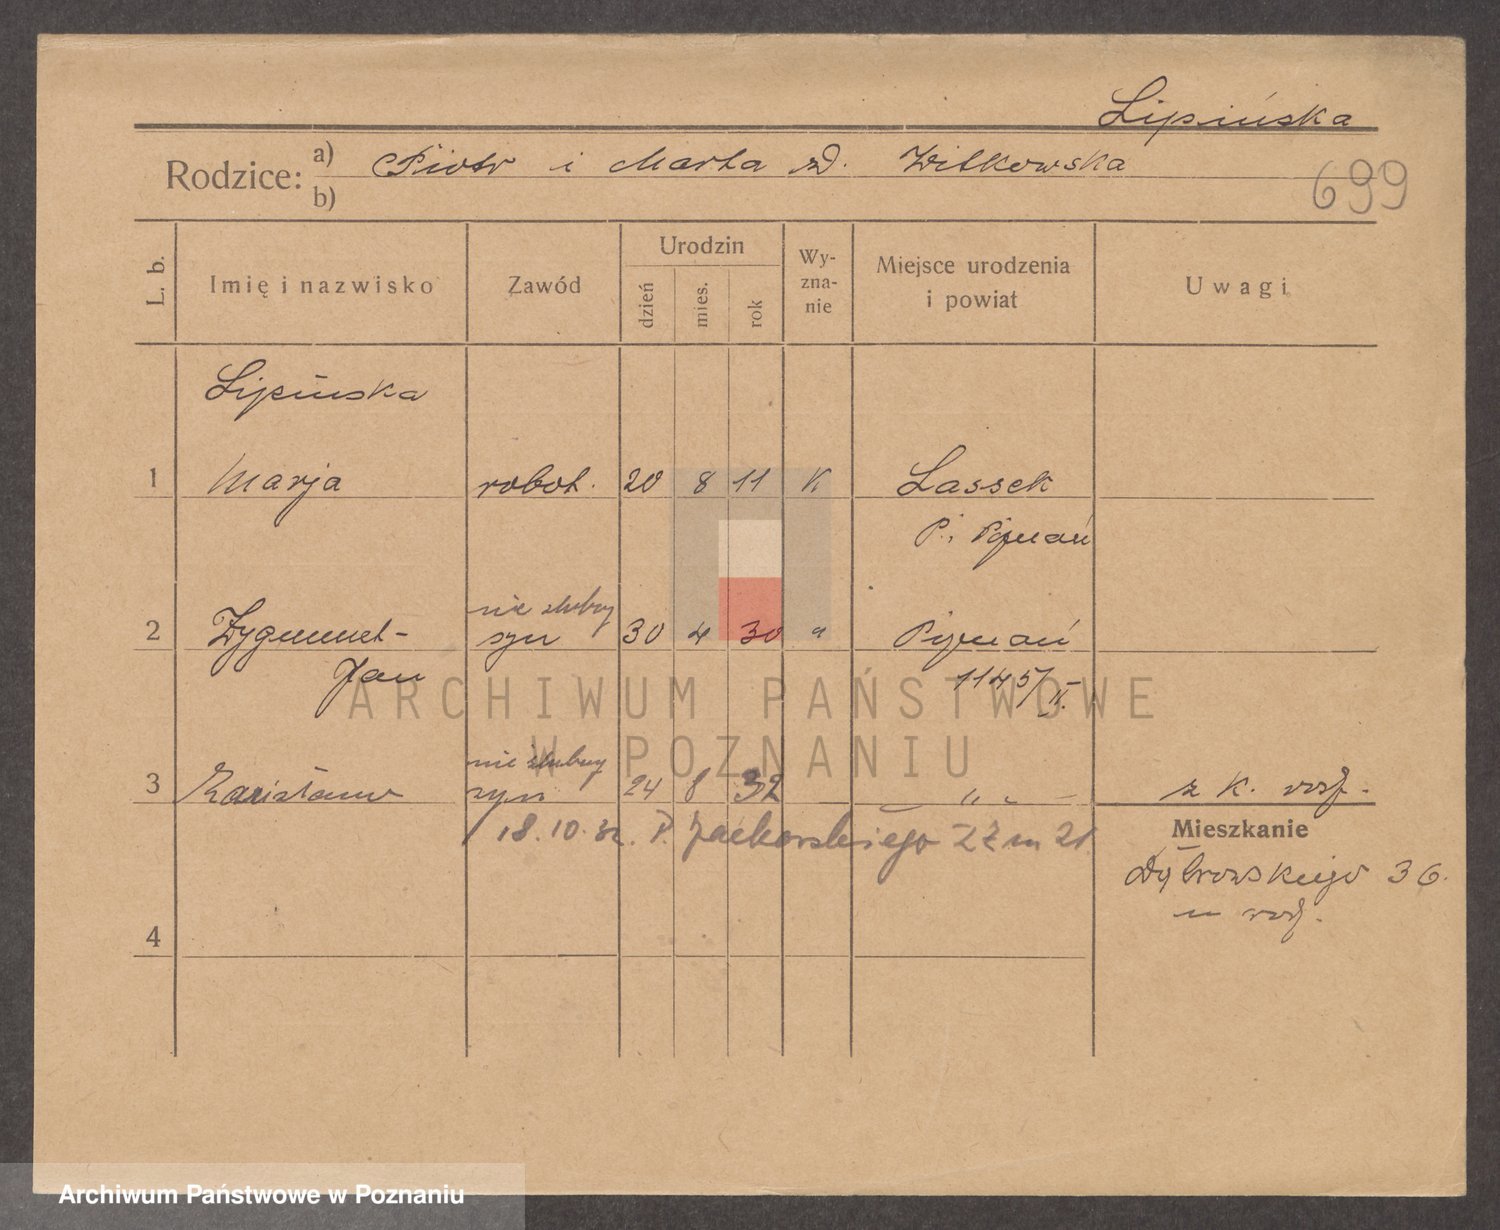 Lipińska
Rodzice: a) Piotr i Marta zd. Witkowska
b)
699
L. b. Imię i nazwisko Zawód Urodzin dzień mies. rok Wyznanie Miejsce urodzenia i powiat Uwagi
Lipińska
1 Marja robot. 20 8 11 K Lassek
P. Poznań
nieślubny
2 Zygmunt- syn 30 4 30 " Poznań
Jan 1145/II.
nieślubny
3 syn 24 8 32 " " z K.
18.10.32. P. 22 m 21
Mieszkanie
Dąbrowskiego 36.
m
4
ARCHIWUM PAŃSTWOWE
W POZNANIU
Archiwum Państwowe w Poznaniu